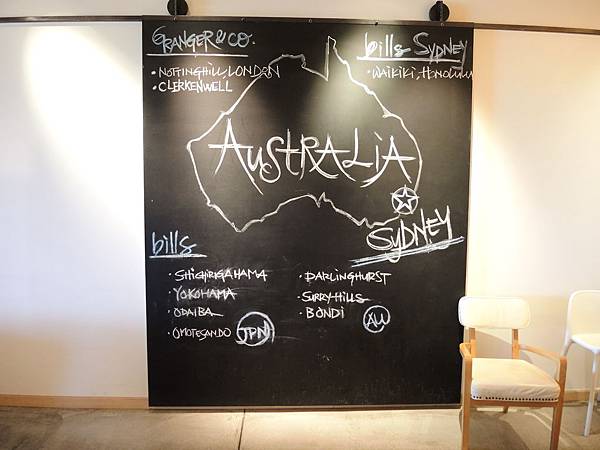 GRANGER & CO.
· NOTTINGHILL, LONDON
· CLERKENWELL
bills SYDNEY
· WAIKIKI, HONOLULU
AUSTRALIA
SYDNEY
bills
· SHICHIRIGAHAMA
· YOKOHAMA
· ODAIBA
· OMOTESANDO
JPN
· DARLINGHURST
· SURRY HILLS
· BONDI
AU